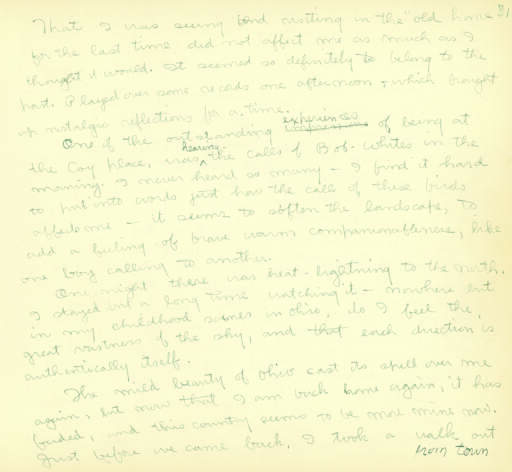 That I was seeing and visiting in the "old home"
for the last time did not affect me as much as I
thought it would. It seemed so definitely to belong to the
past. Played over some records one afternoon + which brought
up nostalgic reflections for a time.
One of the outstanding experiences of being at
the Coy place, was hearing the calls of Bob-whites in the
morning. I never heard so many - I find it hard
to put into words just how the call of these birds
affects me - it seems to soften the landscape, to
add a feeling of brave warm companionableness, like
one boy calling to another.
One night there was heat-lightning to the north.
I stayed out a long time watching it - nowhere but
in my childhood scenes in Ohio, do I feel the
great vastness of the sky, and that each direction is
authentically itself.
The mild beauty of Ohio cast its spell over me
again, but now that I am back home again, it has
faded, and this country seems to be more mine now.
Just before we came back, I took a walk out
from town